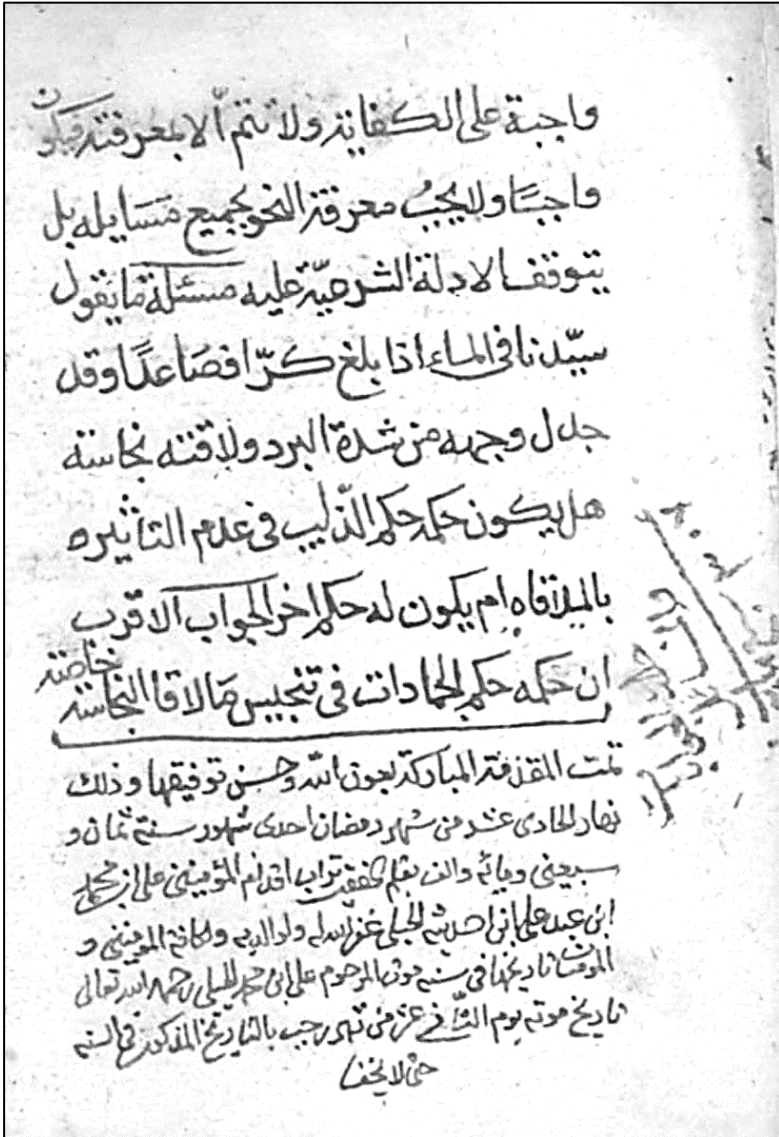 واجبة على الكفاية ولا تتم الا بمعرفته فيكون
واجبًا ولا يجب معرفة النحو بجميع مسايله بل
يتوقف الادلة الشرعيّة عليه مسئلة ما يقول
سيّدنا في الماء اذا بلغ كرّا فصاعدًا وقد
جلل وجهه من شدة البرد ولاقته نجاسة
هل يكون حكمه حكم الذليب في عدم التاثيره
بالملاقاه ام يكون له حكم اخر الجواب الاقرب
ان حكمه حكم الجمادات في تنجيس ما لاقا النجاسة خاصة
تمت المباركة بعون الله وحسن توفيقها وذلك
نهار الحادي عشر من شهر رمضان احدى شهور سنة ثمان و
سبعين وميائه والف بقلم تراب اقدام المؤمنين علي ابن محمد
ابن عبد علي ابن غفر الله له ولوالديه ولكافة المؤمنين و
المؤمنات تاريخها في سنة موت المرحوم علي ابن محمد رحمه الله تعالى
تاريخ موته يوم من شهر رجب بالتاريخ المذكور في السنه
حتى لا يخفا